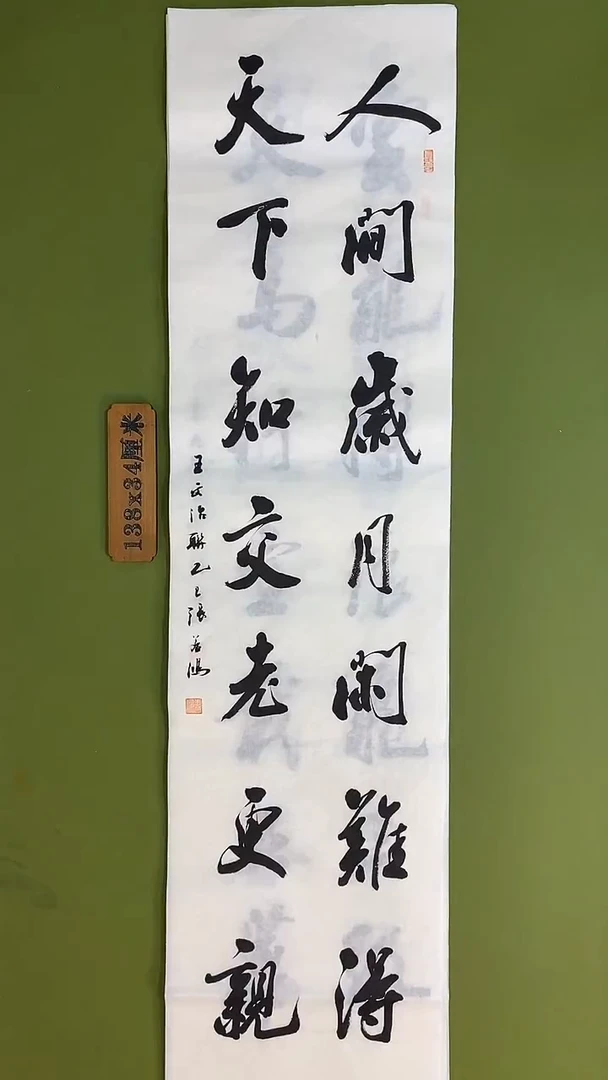 人間歲月閑難得
天下知交老更親
王文治聯乙巳張若鴻
138x34厘米